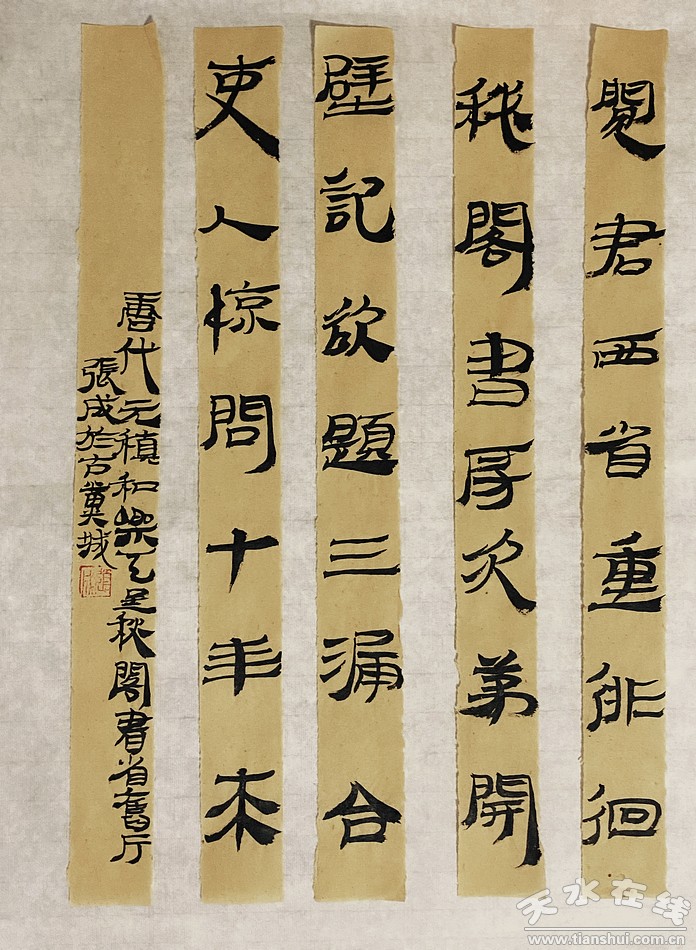 君西省重徘徊
秘閣書房次苐開
壁記欲題三漏合
吏人惊問十年来
唐代元稹和樂天過秘閣書省舊厅
張成於古冀城
天水在线
www.tianshui.com.cn